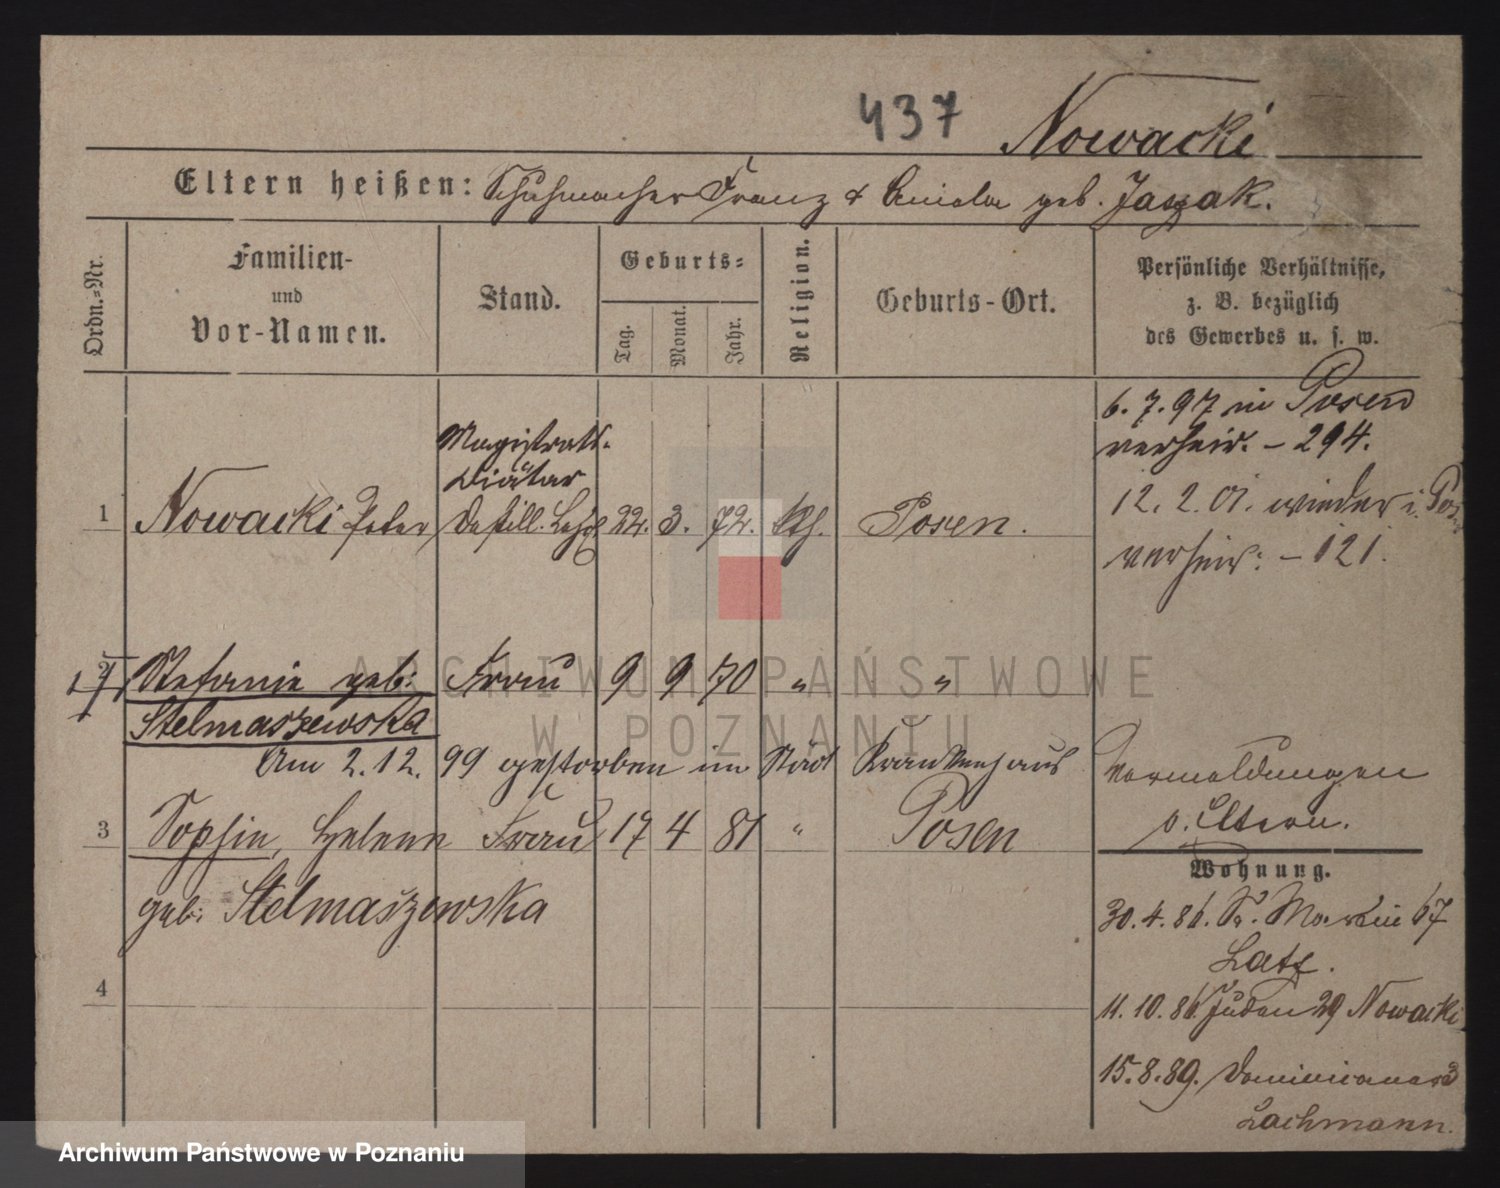 437 Nowacki
Eltern heißen: Schuhmacher Franz & Aniela geb. Jaszak.
Ordn.-Nr.
Familien-
und
Vor-Namen.
Stand.
Geburts-
Tag. Monat. Jahr.
Religion.
Geburts-Ort.
Persönliche Verhältnisse,
z. B. bezüglich
des Gewerbes u. s. w.
6. 7. 97 in Posen
verheir. – 294.
12. 2. 01. wieder i. Pos.
verheir: – 121.
Magistrats-
Diätar
1 Nowacki Peter Destill. Lehrl 22. 3. 72. kth. Posen.
2 Stefanie geb: Frau 9 9 70 " "
Stelmaszewska
Am 2. 12. 99 gestorben im Städt Krankenhaus
3 Sophie, Helene Frau 17 4 81 " Posen
geb: Stelmaszewska
4
Vermeldungen
s. Eltern.
Wohnung.
30. 4. 86. St. Martin 67
Latz.
11. 10. 86. Juden 29 Nowacki
15. 8. 89. Dominicaner 3
Lachmann.
ARCHIWUM PAŃSTWOWE
W POZNANIU
Archiwum Państwowe w Poznaniu